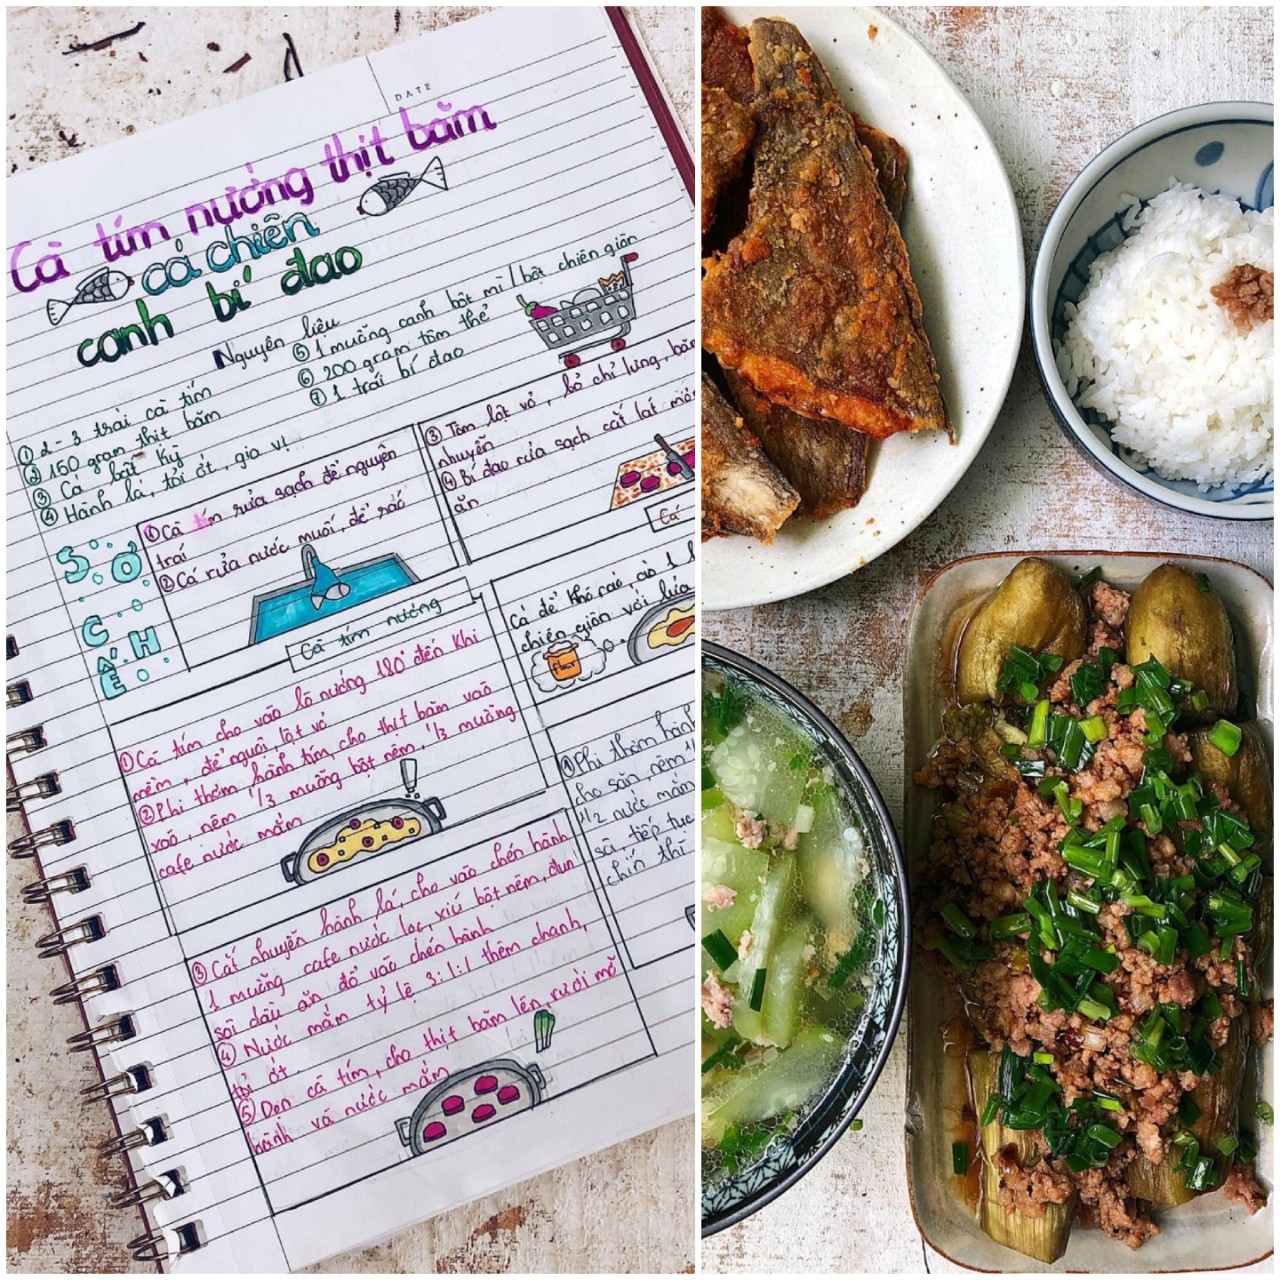 DATE
Cà tím nướng thịt băm
cá chiên
canh bí đao
Nguyên liệu
① 2-3 trái cà tím
② 150 gram thịt băm
③ Cá bất kỳ
④ Hành lá, tỏi ớt, gia vị
⑤ 1 muỗng canh bột mì / bột chiên giòn
⑥ 200 gram tôm thẻ
⑦ 1 trái bí đao
SƠ CHẾ
① Cà tím rửa sạch để nguyên
trái
② Cá rửa nước muối, để ráo
③ Tôm lột vỏ, bỏ chỉ lưng, băm
nhuyễn
④ Bí đao rửa sạch cắt lát mỏng
ăn
Cà tím nướng
① Cà tím cho vào lò nướng 180° đến khi
mềm, để nguội, lột vỏ
② Phi thơm hành tím, cho thịt băm vào
xào, nêm 1/3 muỗng bột nêm, 1/3 muỗng
cafe nước mắm
③ Cắt nhuyễn hành lá, cho vào chén hành
1 muỗng cafe nước lọc, xíu bột nêm, đun
sôi dầu ăn đổ vào chén hành
④ Nước mắm tỷ lệ 3:1:1 thêm chanh,
tỏi ớt.
⑤ Dọn cà tím, cho thịt băm lên, rưới mỡ
hành và nước mắm
Cá
Cá để khô ráo, áo 1 l
chiên giòn với lửa
flour
① Phi thơm hành
cho săn, nêm 1
1/2 nước mắm
sôi, tiếp tục
chín thì